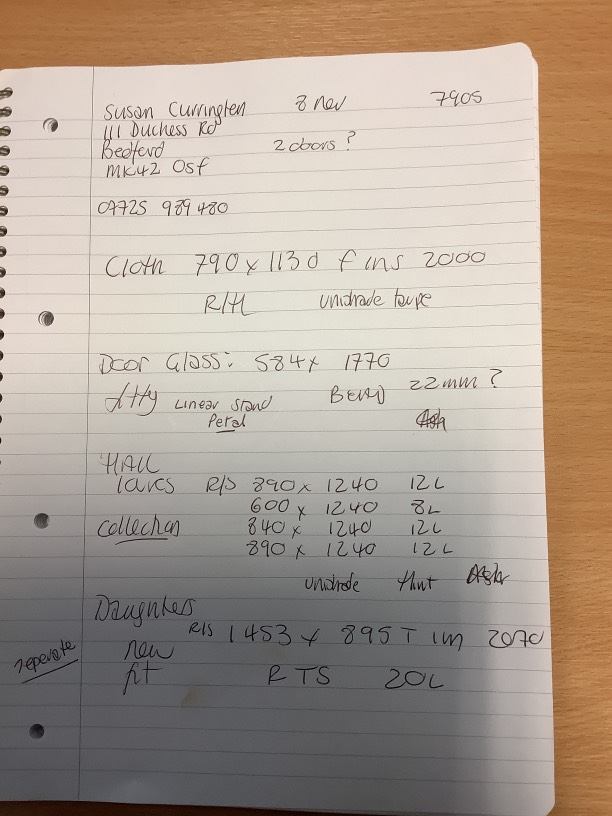 Susan Currington 8 nev 7905
111 Duchess Rd
Bedford 2 doors ?
MK42 0sf
07725 989 480
Cloth 790 x 1130 f ins 2000
R/H Unishade taupe
Door Glass: 584 x 1770
Linear Strand BEVD 22mm ?
Petal
HALL
R/S 890 x 1240 12L
600 x 1240 8L
Collection 840 x 1240 12L
890 x 1240 12L
Unishade flint
Daughters
R/S 1453 x 895 T im 2070
new
seperate
fit R T S 20L